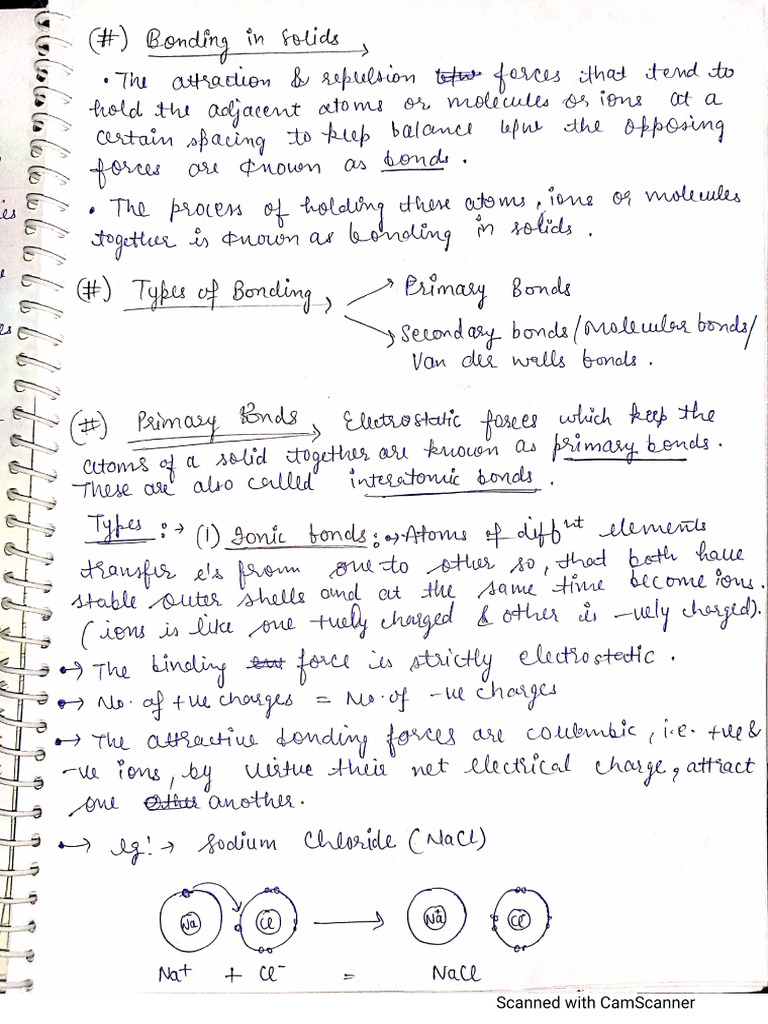 (#) Bonding in solids
• The attraction & repulsion forces that tend to
hold the adjacent atoms or molecules or ions at a
certain spacing to keep balance b/w the opposing
forces are known as bonds.
• The process of holding these atoms, ions or molecules
together is known as bonding in solids.
(#) Types of Bonding → Primary Bonds
→ Secondary bonds/Molecular bonds/
Van der walls bonds.
(#) Primary Bonds → Electrostatic forces which keep the
atoms of a solid together are known as primary bonds.
These are also called interatomic bonds.
Types :→ (1) Ionic bonds :→ Atoms of diff^nt elements
transfer e's from one to other so, that both have
stable outer shells and at the same time become ions.
(ions is like one +vely charged & other is -vely charged).
→ The binding force is strictly electrostedic.
→ No. of +ve charges = No. of -ve charges
→ The attractive bonding forces are coulmbic, i.e. +ve &
-ve ions, by virtue their net electrical charge, attract
one another.
→ eg! → Sodium Chloride (NaCl)
Na Cl → Na Cl
Na+ + Cl- = NaCl
Scanned with CamScanner